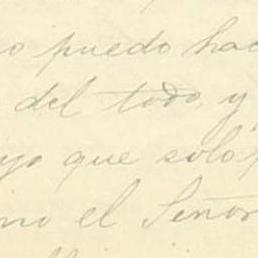 o puedo hac
del todo, y
yo que solo
no el Señor